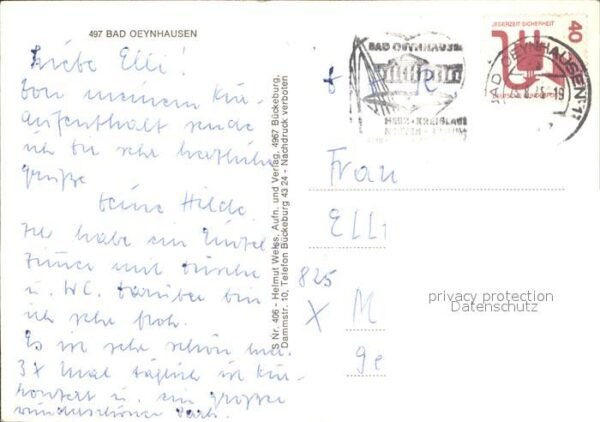 497 BAD OEYNHAUSEN
Liebe Elli!
Von meinem Kur-
aufenthalt sende
ich Dir sehr herzliche
Grüße
Deine Hilde.
Ich habe ein Einzel
zimmer mit Dusche
u. WC. Darüber bin
ich sehr froh.
Es ist sehr schön hier.
3x Mal täglich ist Kur-
konzert u. ein großer
wunderschöner Park.
S Nr. 406 - Helmut Weiss, Aufn. und Verlag, 4967 Bückeburg,
Dammstr. 10, Telefon Bückeburg 43 24 - Nachdruck verboten
BAD OEYNHAUSEN
HERZ-KREISLAUF
JEDERZEIT SICHERHEIT
40
DEUTSCHE BUNDESPOST
BAD OEYNHAUSEN 1
Frau
Elli
825
X M
ge
privacy protection
Datenschutz